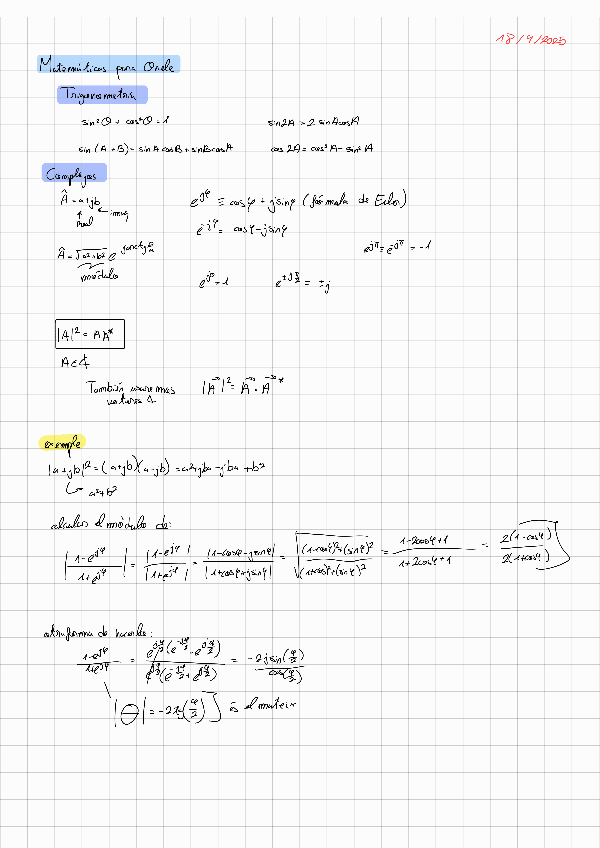 18/9/2023
Matemáticas para Onda
Trigonometría
sin²θ + cos²θ = 1 sin2A = 2 sinAcosA
sin(A+B) = sinAcosB + sinBcosA cos2A = cos²A - sin²A
Complejos
Â = a+jb e^{jφ} ≡ cosφ + jsinφ (fórmula de Euler)
↑ real ← imag
e^{-jφ} = cosφ - jsinφ
e^{jπ} = e^{-jπ} = -1
Â = √(a²+b²) e^{jarctg b/a}
módulo
e^{j0} = 1 e^{±jπ/2} = ±j
|A|² = AA*
A∈ℂ
También usaremos |A⃗|² = A⃗ · A⃗*
vectores
exemple
|a+jb|² = (a+jb)(a-jb) = a²+jba-jba+b²
a²+b²
calculas el módulo de:
|(1-e^{jφ})/(1+e^{jφ})| = |1-e^{jφ}|/|1+e^{jφ}| = |1-cosφ-jsinφ|/|1+cosφ+jsinφ| = √((1-cosφ)²+(sinφ)²)/((1+cosφ)²+(sinφ)²) = (1-2cosφ+1)/(1+2cosφ+1) = 2(1-cosφ)/2(1+cosφ)
otra forma de hacerlo:
(1-e^{jφ})/(1+e^{jφ}) = e^{jφ/2}(e^{-jφ/2}-e^{jφ/2})/e^{jφ/2}(e^{-jφ/2}+e^{jφ/2}) = -2jsin(φ/2)/cos(φ/2)
|θ| = -2tg(φ/2) es el mateix